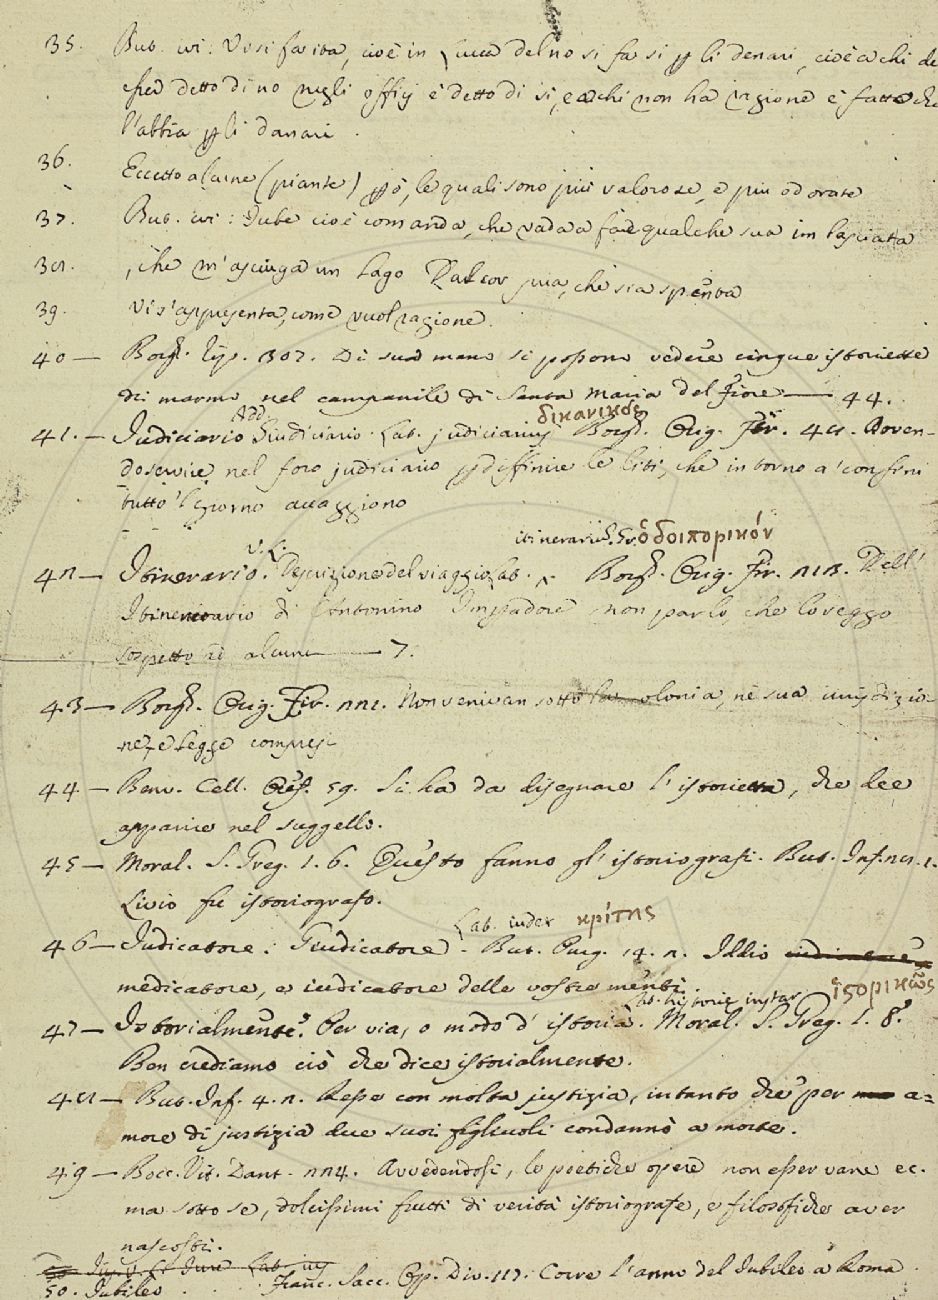 35. But. ivi: Vi si fa ita, cioè in Lucca del no si fa si p li denari, cioè a chi de
esser detto di no negli offizj è detto di sì, e a chi non ha ragione è fatto che
l'abbia p li danari.
36. Eccetto alcune (piante) però, le quali sono più valorose, e più odorate
37. But. ivi: Jube cioè comanda, che vada a fare qualche sua imbasciata
38. , che m'asciuga un lago Dal cor pria, che sia spenta
39. Vi s'appresenta, come vuol ragione.
40 — Borgh. Rip. 307. Di sua mano si possono vedere cinque istoriette
di marmo nel campanile di Santa Maria del Fiore — 44.
Add δικανικός
41. — Iudiciario Giudiciario. Lat. judiciarius Borgh. Orig. Fir. 48. Doven-
dosene nel foro judiciario p diffinire le liti, che intorno a' confini
tutto 'l giorno accaggiono
V. L. itinerariũ. Gr. ὁδοιπορικόν
42 — Itinerario. Descrizione del viaggio Lat. Borgh. Orig. Fir. 213. Dell'
Itinerario di Antonino Impadore non parlo, che lo veggo
sospetto ad alcuni — 7.
43 — Borgh. Orig. Fir. 221. Non venivan sotto la colonia, nè sua iurisdizio-
ne, e legge compresi
44 — Benv. Cell. Oref. 59. Si ha da disegnare l'istorietta, che dee
apparire nel suggello.
45 — Moral. S. Greg. 1. 6. Questo fanno gl'istoriografi. But. Inf. 28. 1.
Livio fu istoriografo.
Lat. iudex κρίτης
46 — Iudicatore: Giudicatore. But. Purg. 14. 2. Iddio
medicatore, e iudicatore delle vostre menti.
Lat. historiæ instar ἱςορικῶς
47 — Istorialmente. Per via, o modo d'istoria. Moral. S. Greg. 1. 8.
Ben crediamo ciò che dice istorialmente.
48 — But. Inf. 4. 2. Resse con molta justizia, intanto che per a=
more di justizia due suoi figliuoli condannò a morte.
49 — Bocc. Vit. Dant. 224. Avvedendosi, le poetiche opere non esser vane ec.
ma sotto se, dolcissimi frutti di verità istoriografe, e filosofiche aver
nascosti.
50. Iubileo . . . Franc. Sacc. Op. Div. 117. Corre l'anno del Iubileo a Roma.